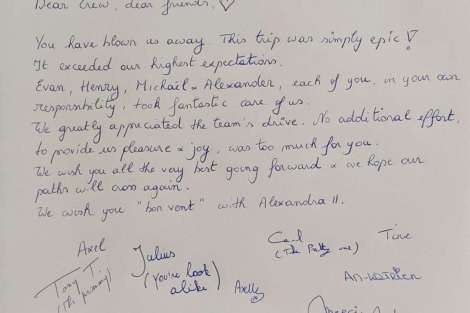 Dear Crew, dear friends, ♡
You have blown us away. This trip was simply epic!
It exceeded our highest expectations.
Evan, Henry, Michaël & Alexander, each of you, in your own
responsibility, took fantastic care of us.
We greatly appreciated the team's drive. No additional effort,
to provide us pleasure & joy, was too much for you.
We wish you all the very best going forward & we hope our
paths will cross again.
We wish you "bon vent" with Alexandra II.
Axel
Julius
(You're look
alike)
(The Pretty one)
Tine
Axelly
An-Katrien